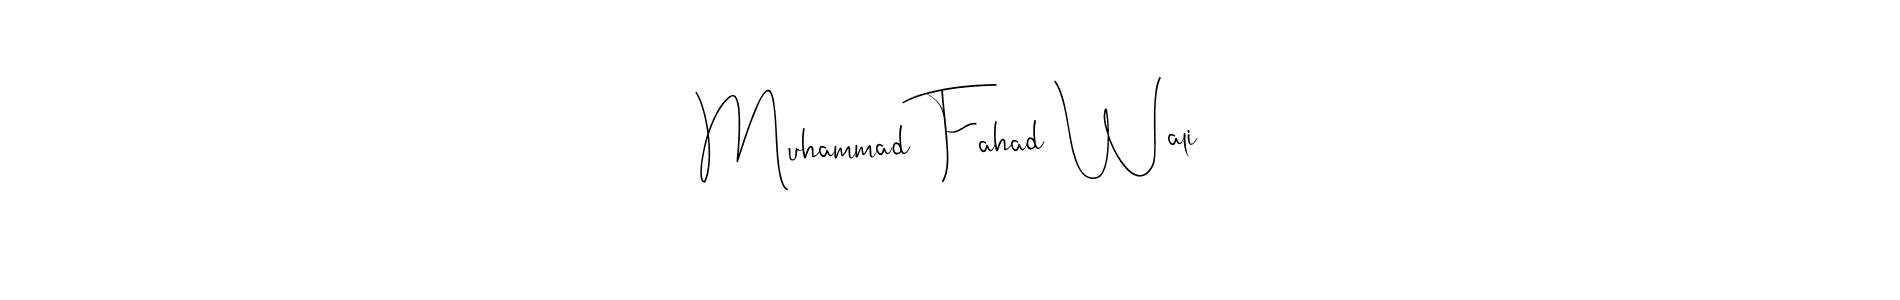 Muhammad Fahad Wali